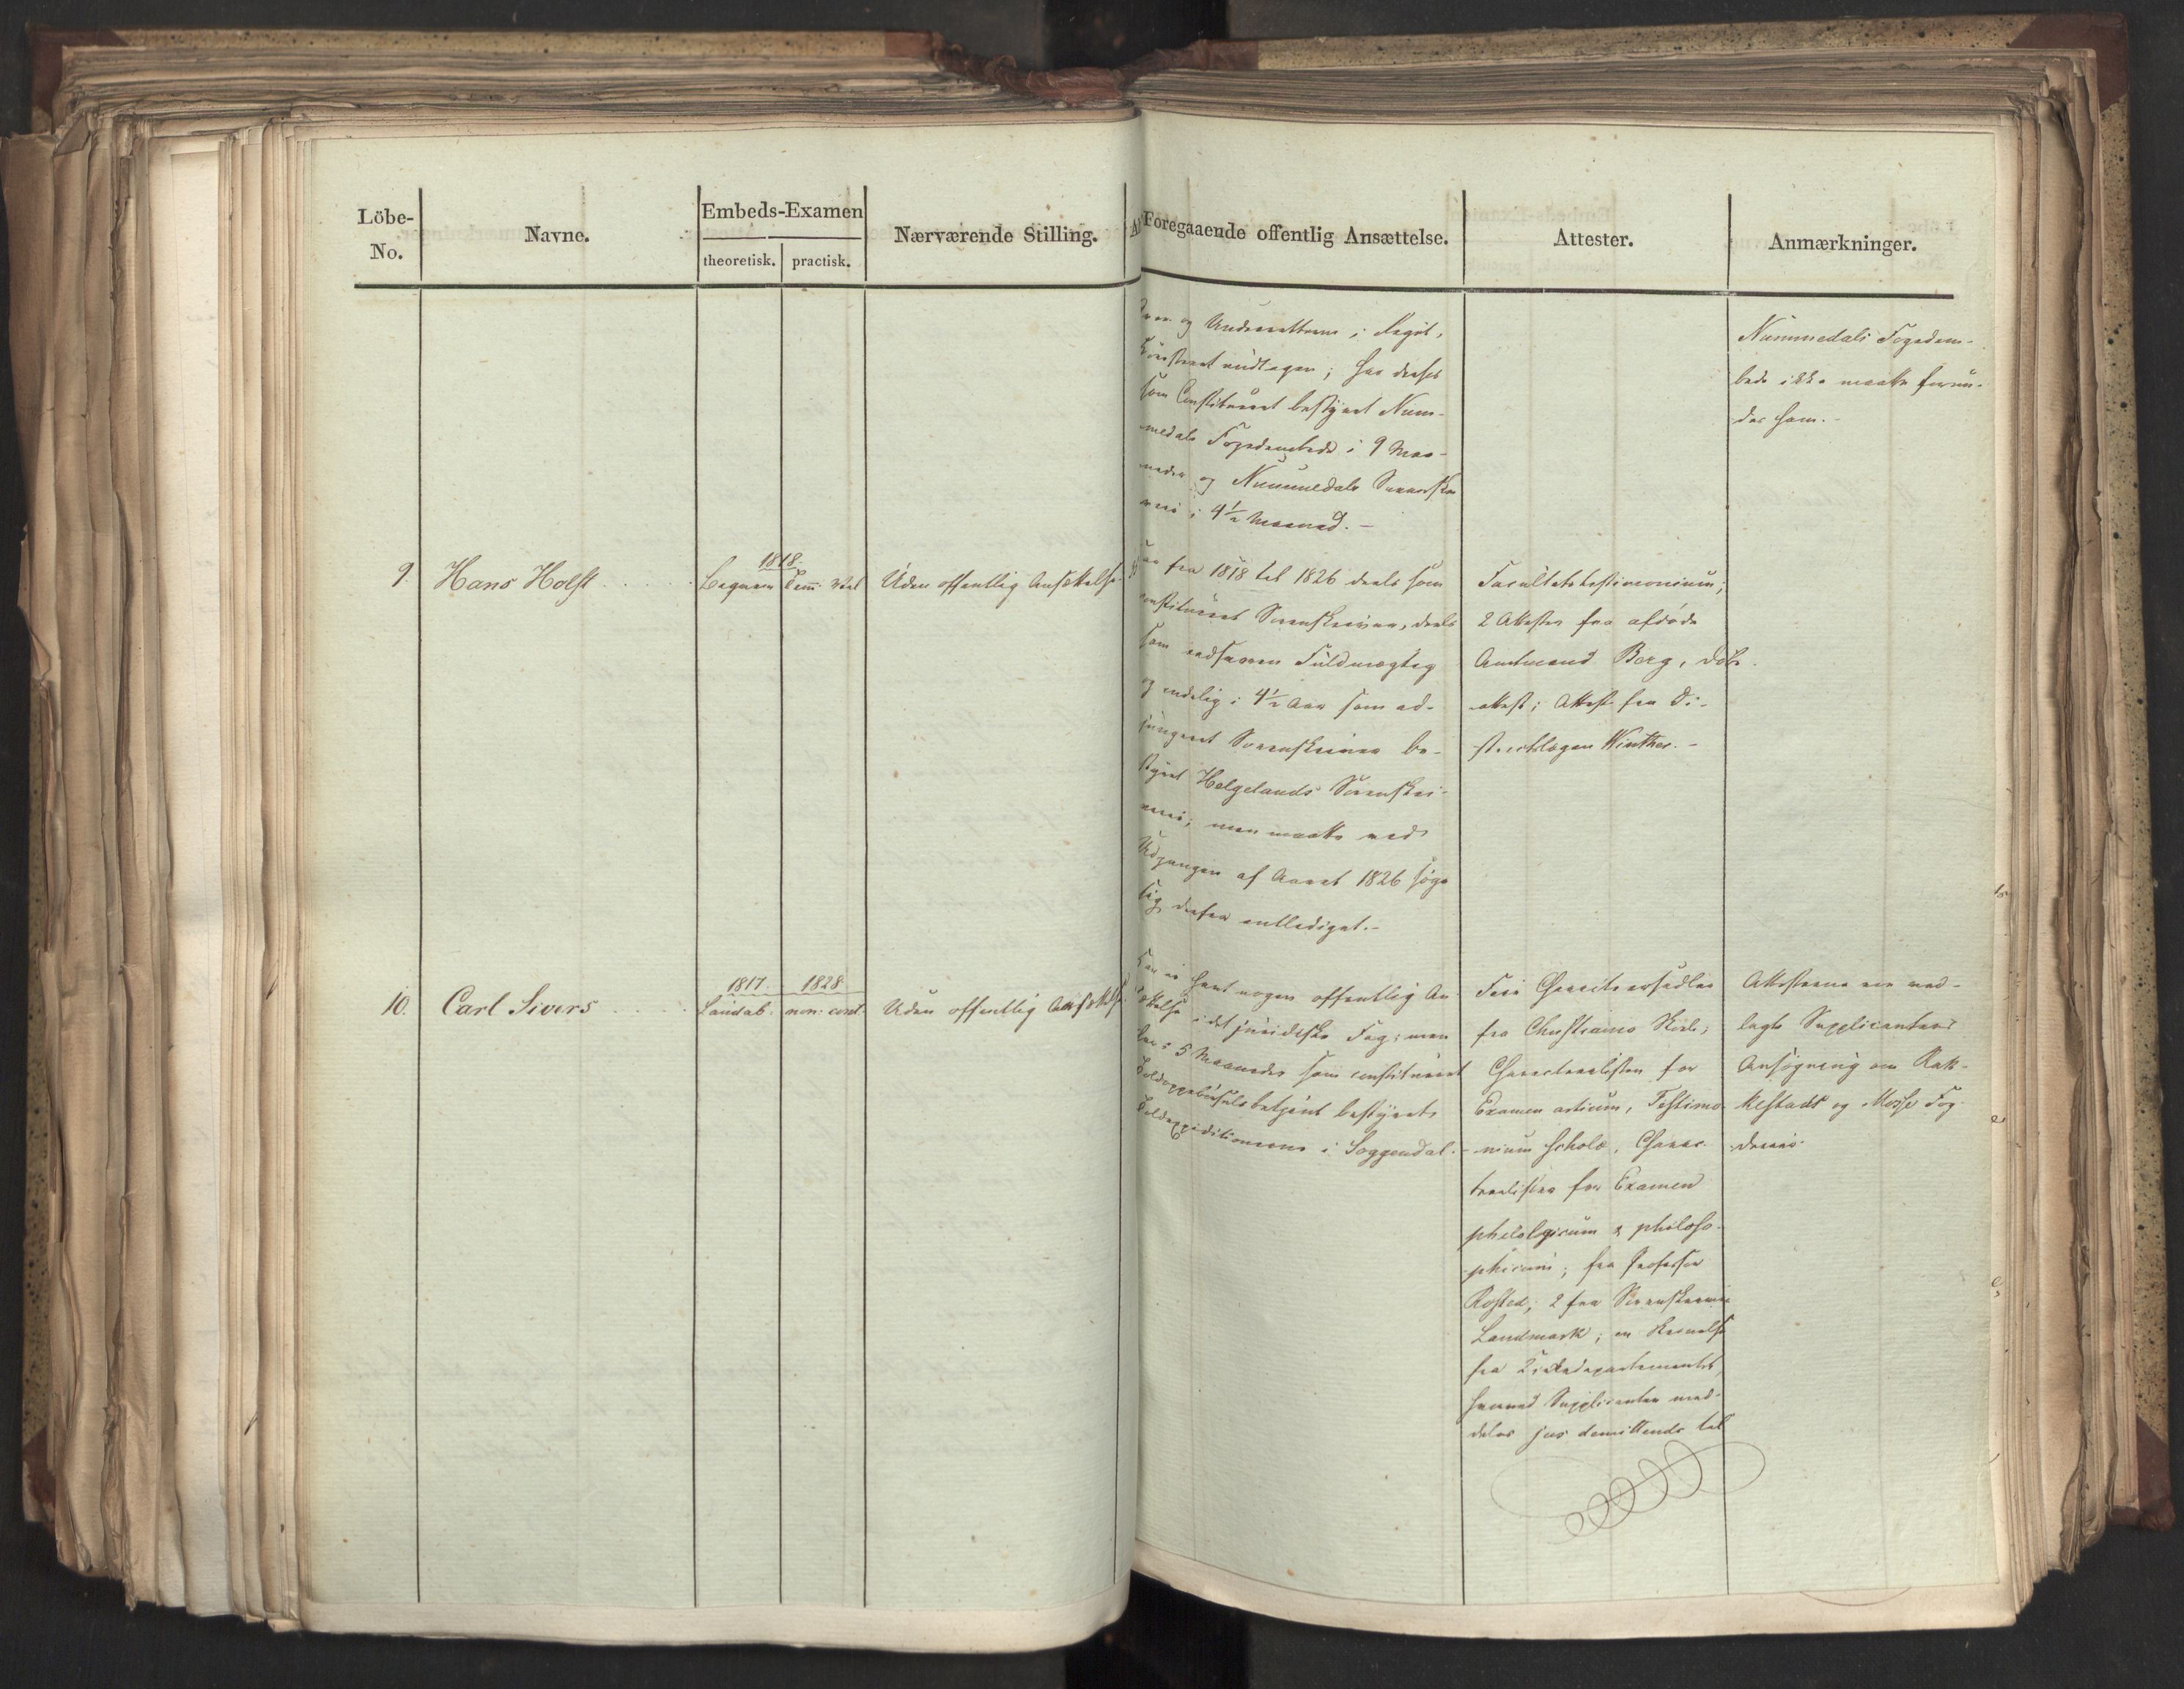 Löbe-
No.
Navne.
Embeds-Examen
theoretisk. practisk.
Nærværende Stilling.
Foregaaende offentlig Ansættelse.
Attester.
Anmærkninger.
og Underretterne i
undtagen; har derhos
som Constitueret bestyret Num-
medals Fogedembede i 9 Maa-
neder og Nummedals Sorenskri-
veri i 4½ Maaned.-
Nummedals Fogedem-
bede ikke maatte forun-
des ham.-
9. Hans Holst
1818.
Beqvem
Uden offentlig Ansættelse.
fra 1818 til 1826 deels som
constitueret Sorenskriver, deels
som edsvoren Fuldmægtig
og endelig i 4½ Aar som ad-
jungeret Sorenskriver be-
styret Helgelands Sorenskri-
veri; men maatte ved
Udgangen af Aaret 1826 söge
sig derfra entlediget.-
Facultetstestimonium;
2 Attester fra afdöde
Amtmand Berg, Döbe-
attest; Attest fra Di-
strictslægen Winther.-
10. Carl Sivers
1817. 1828
Laudab. non: cont.
Uden offentlig Ansættelse.
Har ei havt nogen offentlig An-
sættelse i det juridiske Fag; men
har i 5 Maaneder som constitueret
Toldopsynsbetjent bestyret
Toldexpeditionerne i Soggendal.-
fra Christiania Skole;
Characteerlisten for
Examen artium, Testimo-
nium scholæ, Charac-
teerlisten for Examen
philologicum & philoso-
phicum; fra Professor
Rosted; 2 fra Sorenskriver
Landmark; en Skrivelse
fra Kirkedepartementet,
hvorved Supplicanten med-
deles jus demittendi til
Attesterne ere ved-
lagte Supplicantens
Ansögning om Rak-
kestads og Mosse Fog-
derie.